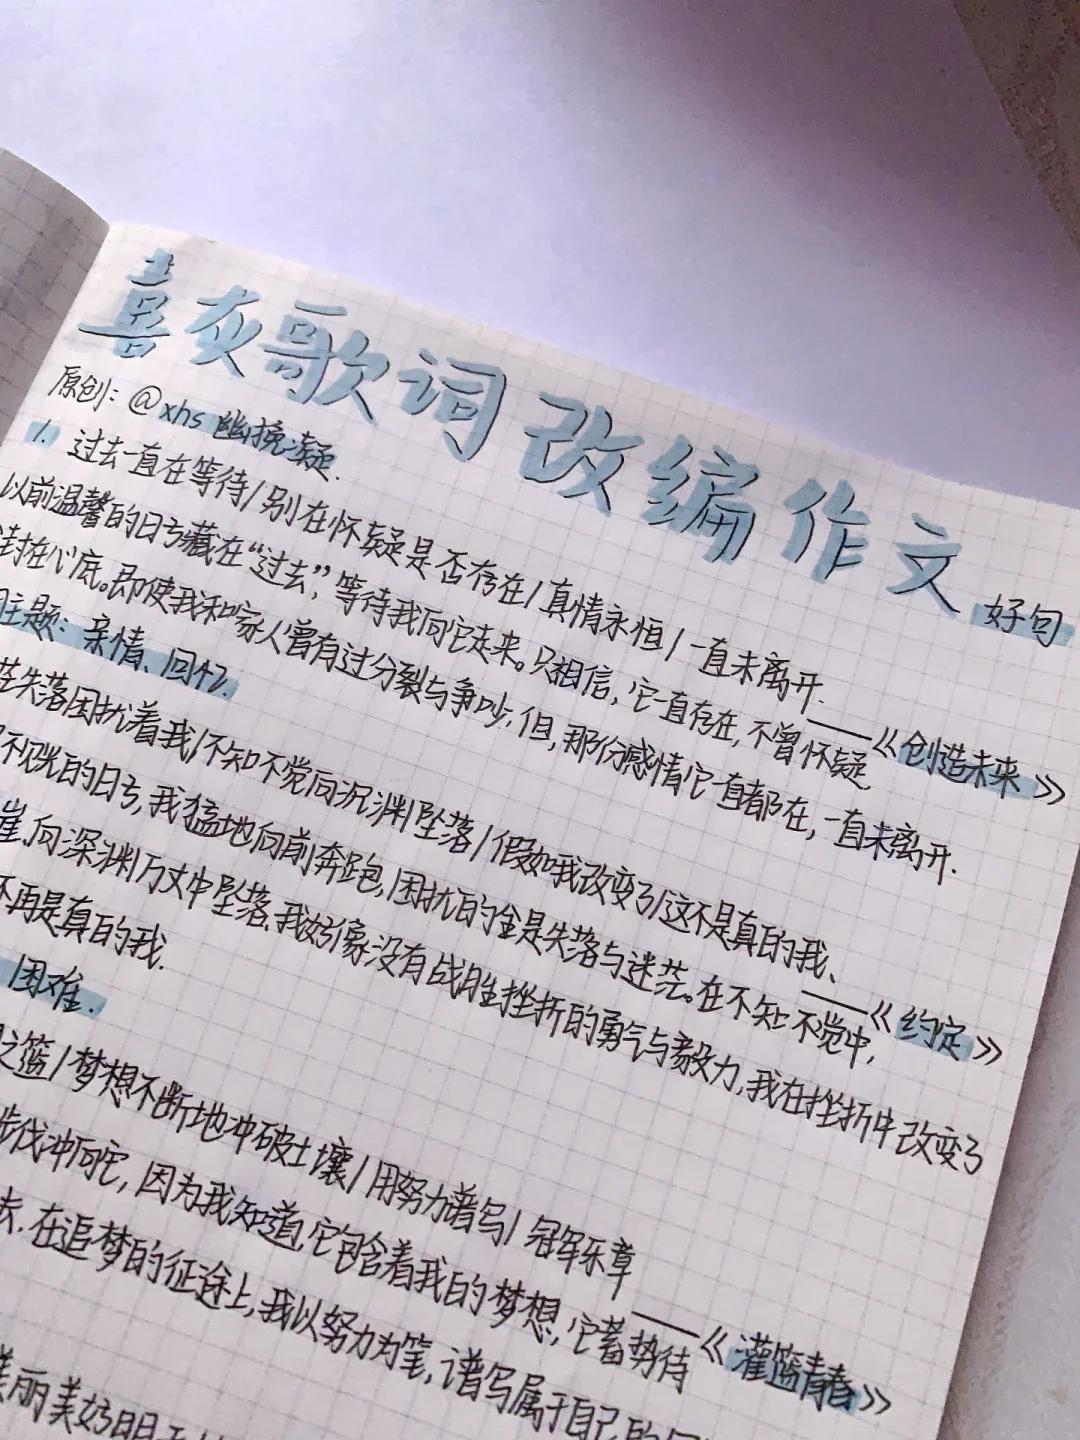 喜灰歌词改编作文
好句
原创：@xhs 幽挽凝.
1. 过去一直在等待/别在怀疑是否存在/真情永恒/一直未离开.
——《创造未来》
以前温馨的日子藏在“过去”，等待我向它走来。只相信，它一直存在，不曾怀疑
封在心底。即使我和家人曾有过分裂与争吵.但，那份感情它一直都在，一直未离开.
主题：亲情、回忆.
失落困扰着我/不知不觉向沉渊坠落/假如我改变了/这不是真的我、
——《约定》
的日子，我猛地向前奔跑，困扰的全是失落与迷茫。在不知不觉中，
崖，向深渊万丈中坠落.我好像没有战胜挫折的勇气与毅力，我在挫折中改变了
不再是真的我.
困难.
之篮/梦想不断地冲破土壤/用努力谱写/冠军乐章
——《灌篮青春》
步伐冲向它，因为我知道，它包含着我的梦想，它蓄势待
去.在追梦的征途上，我以努力为笔，谱写属于自己的
美丽美好明天